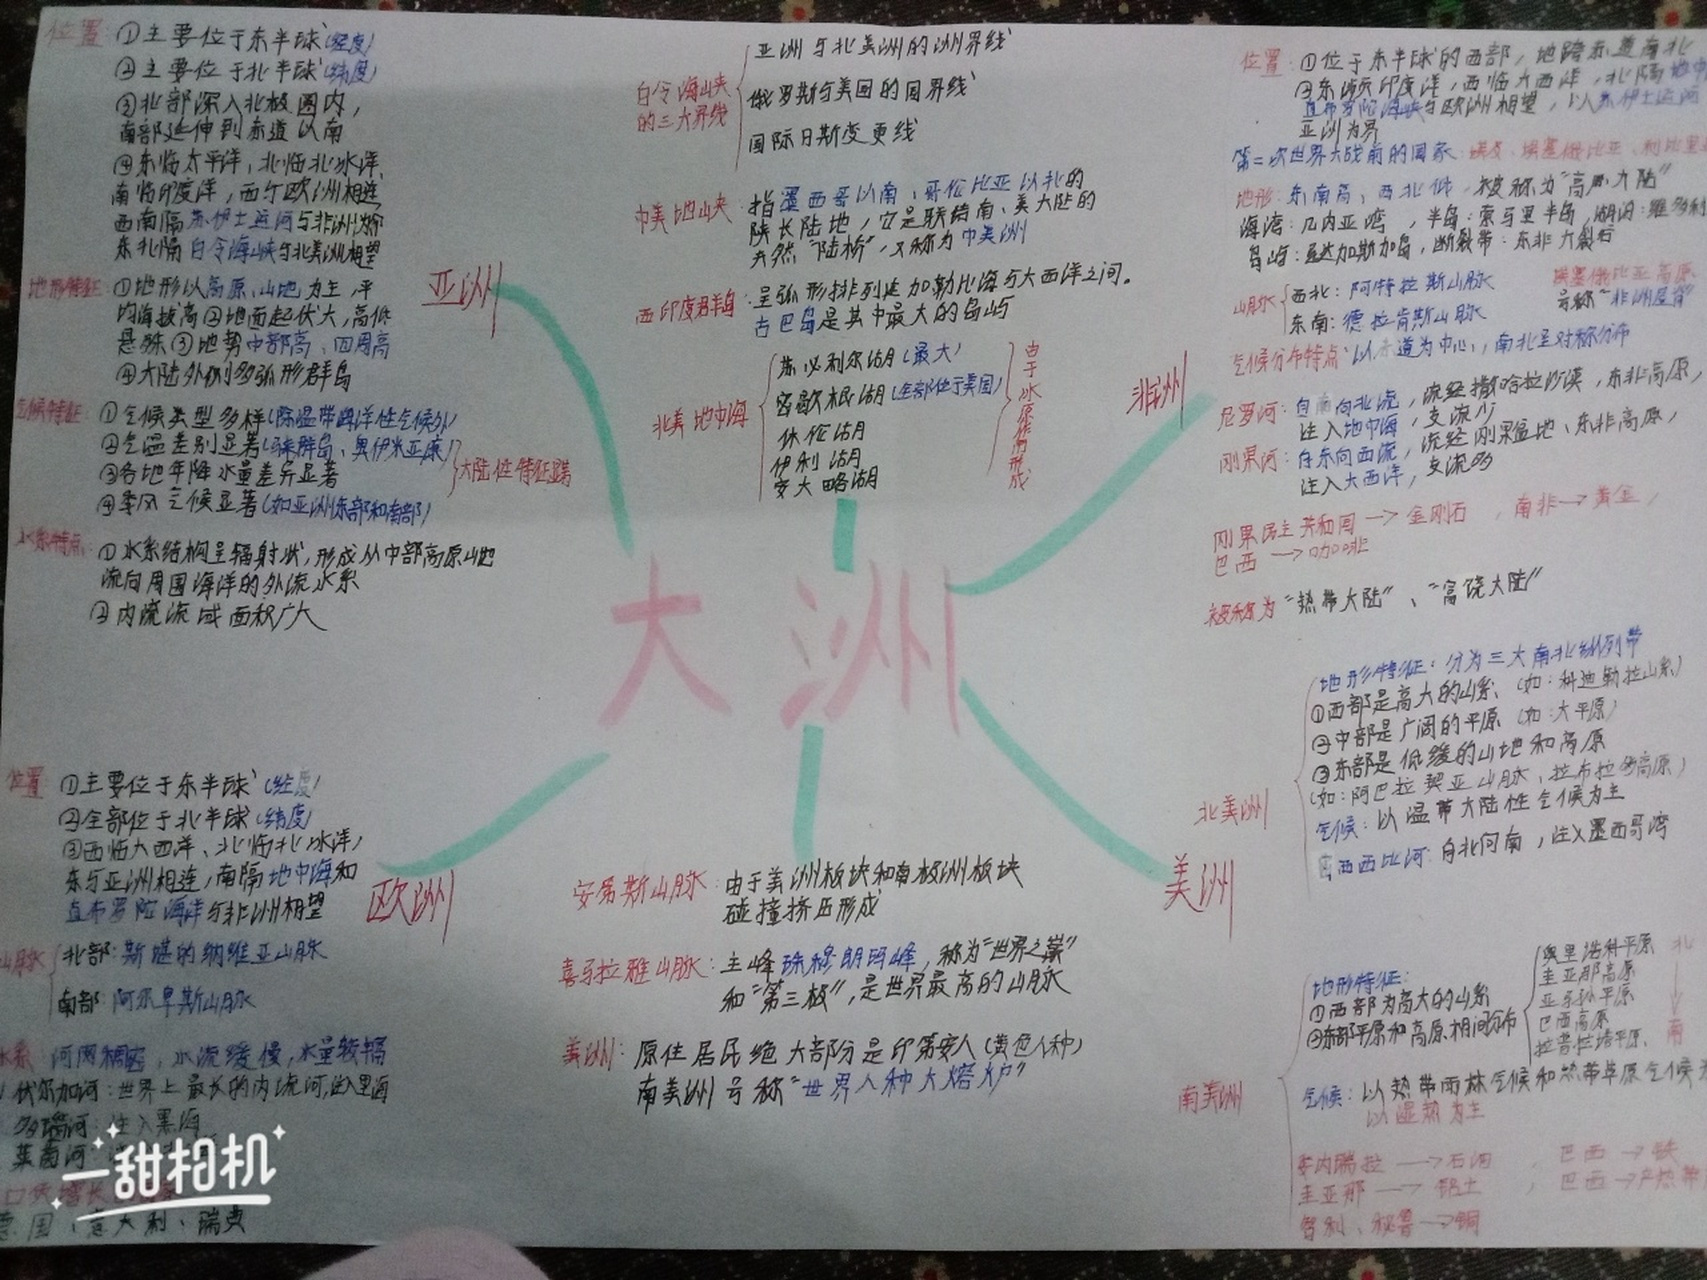 大洲
亚洲
位置：①主要位于东半球(经度)
②主要位于北半球(纬度)
③北部深入北极圈内，
南部延伸到赤道以南
④东临太平洋，北临北冰洋，
南临印度洋，西与欧洲相连
西南隔苏伊士运河与非洲为邻
东北隔白令海峡与北美洲相望
地形特征：①地形以高原、山地为主，平
均海拔高②地面起伏大，高低
悬殊③地势中部高、四周高
④大陆外侧多弧形群岛
气候特征：①气候类型多样(除温带海洋性气候外)
②气温差别显著(马来群岛、奥伊米亚康)
③各地年降水量差异显著
④季风气候显著(如亚洲东部和南部)
大陆性特征显著
水系特点：①水系结构呈辐射状，形成从中部高原山地
流向周围海洋的外流水系
②内流流域面积广大
白令海峡
的三大界线
亚洲与北美洲的洲界线
俄罗斯与美国的国界线
国际日期变更线
中美地峡：指墨西哥以南、哥伦比亚以北的
狭长陆地，它是联结南、美大陆的
天然"陆桥"，又称为中美洲
西印度群岛：呈弧形排列延加勒比海与大西洋之间。
古巴岛是其中最大的岛屿
北美地中海
苏必利尔湖(最大)
密歇根湖(全部位于美国)
休伦湖
伊利湖
安大略湖
由于冰原作用形成
非洲
位置：①位于东半球的西部，地跨赤道南北
②东濒印度洋，西临大西洋，北隔地中
直布罗陀海峡与欧洲相望，以苏伊士运河
亚洲为界
第二次世界大战前的国家：埃及、埃塞俄比亚、利比里
地形：东南高、西北低，被称为"高原大陆"
海湾：几内亚湾，半岛：索马里半岛，湖泊：维多利
岛屿：马达加斯加岛，断裂带：东非大裂谷
山脉
西北：阿特拉斯山脉
东南：德拉肯斯山脉
埃塞俄比亚高原
号称"非洲屋脊"
气候分布特点：以赤道为中心，南北呈对称分布
尼罗河：自南向北流，流经撒哈拉沙漠，东非高原，
注入地中海，支流少
刚果河：自东向西流，流经刚果盆地、东非高原，
注入大西洋，支流多
刚果民主共和国→金刚石，南非→黄金，
巴西→咖啡
被称为"热带大陆"、"富饶大陆"
美洲
北美洲
地形特征：分为三大南北纵列带
①西部是高大的山系(如：科迪勒拉山系)
②中部是广阔的平原(如：大平原)
③东部是低缓的山地和高原
(如：阿巴拉契亚山脉、拉布拉多高原)
气候：以温带大陆性气候为主
密西西比河：自北向南，注入墨西哥湾
南美洲
地形特征：
①西部为高大的山系
②东部平原和高原相间分布
奥里诺科平原
圭亚那高原
亚马孙平原
巴西高原
拉普拉塔平原
北→南
气候：以热带雨林气候和热带草原气候为
以湿热为主
委内瑞拉→石油，巴西→铁
圭亚那→铝土，巴西→产热带
智利、秘鲁→铜
欧洲
位置①主要位于东半球(经度)
②全部位于北半球(纬度)
③西临大西洋、北临北冰洋，
东与亚洲相连，南隔地中海和
直布罗陀海洋与非洲相望
山脉
北部：斯堪的纳维亚山脉
南部：阿尔卑斯山脉
水系 河网稠密，水流缓慢，水量较幅
伏尔加河：世界上最长的内流河，注入里海
多瑙河：注入黑海
莱茵河：
口 增长
德国、意大利、瑞典
安第斯山脉：由于美洲板块和南极洲板块
碰撞挤压形成
喜马拉雅山脉：主峰珠穆朗玛峰，称为"世界之巅"
和"第三极"，是世界最高的山脉
美洲：原住居民绝大部分是印第安人(黄色人种)
南美洲号称"世界人种大熔炉"
一甜相机